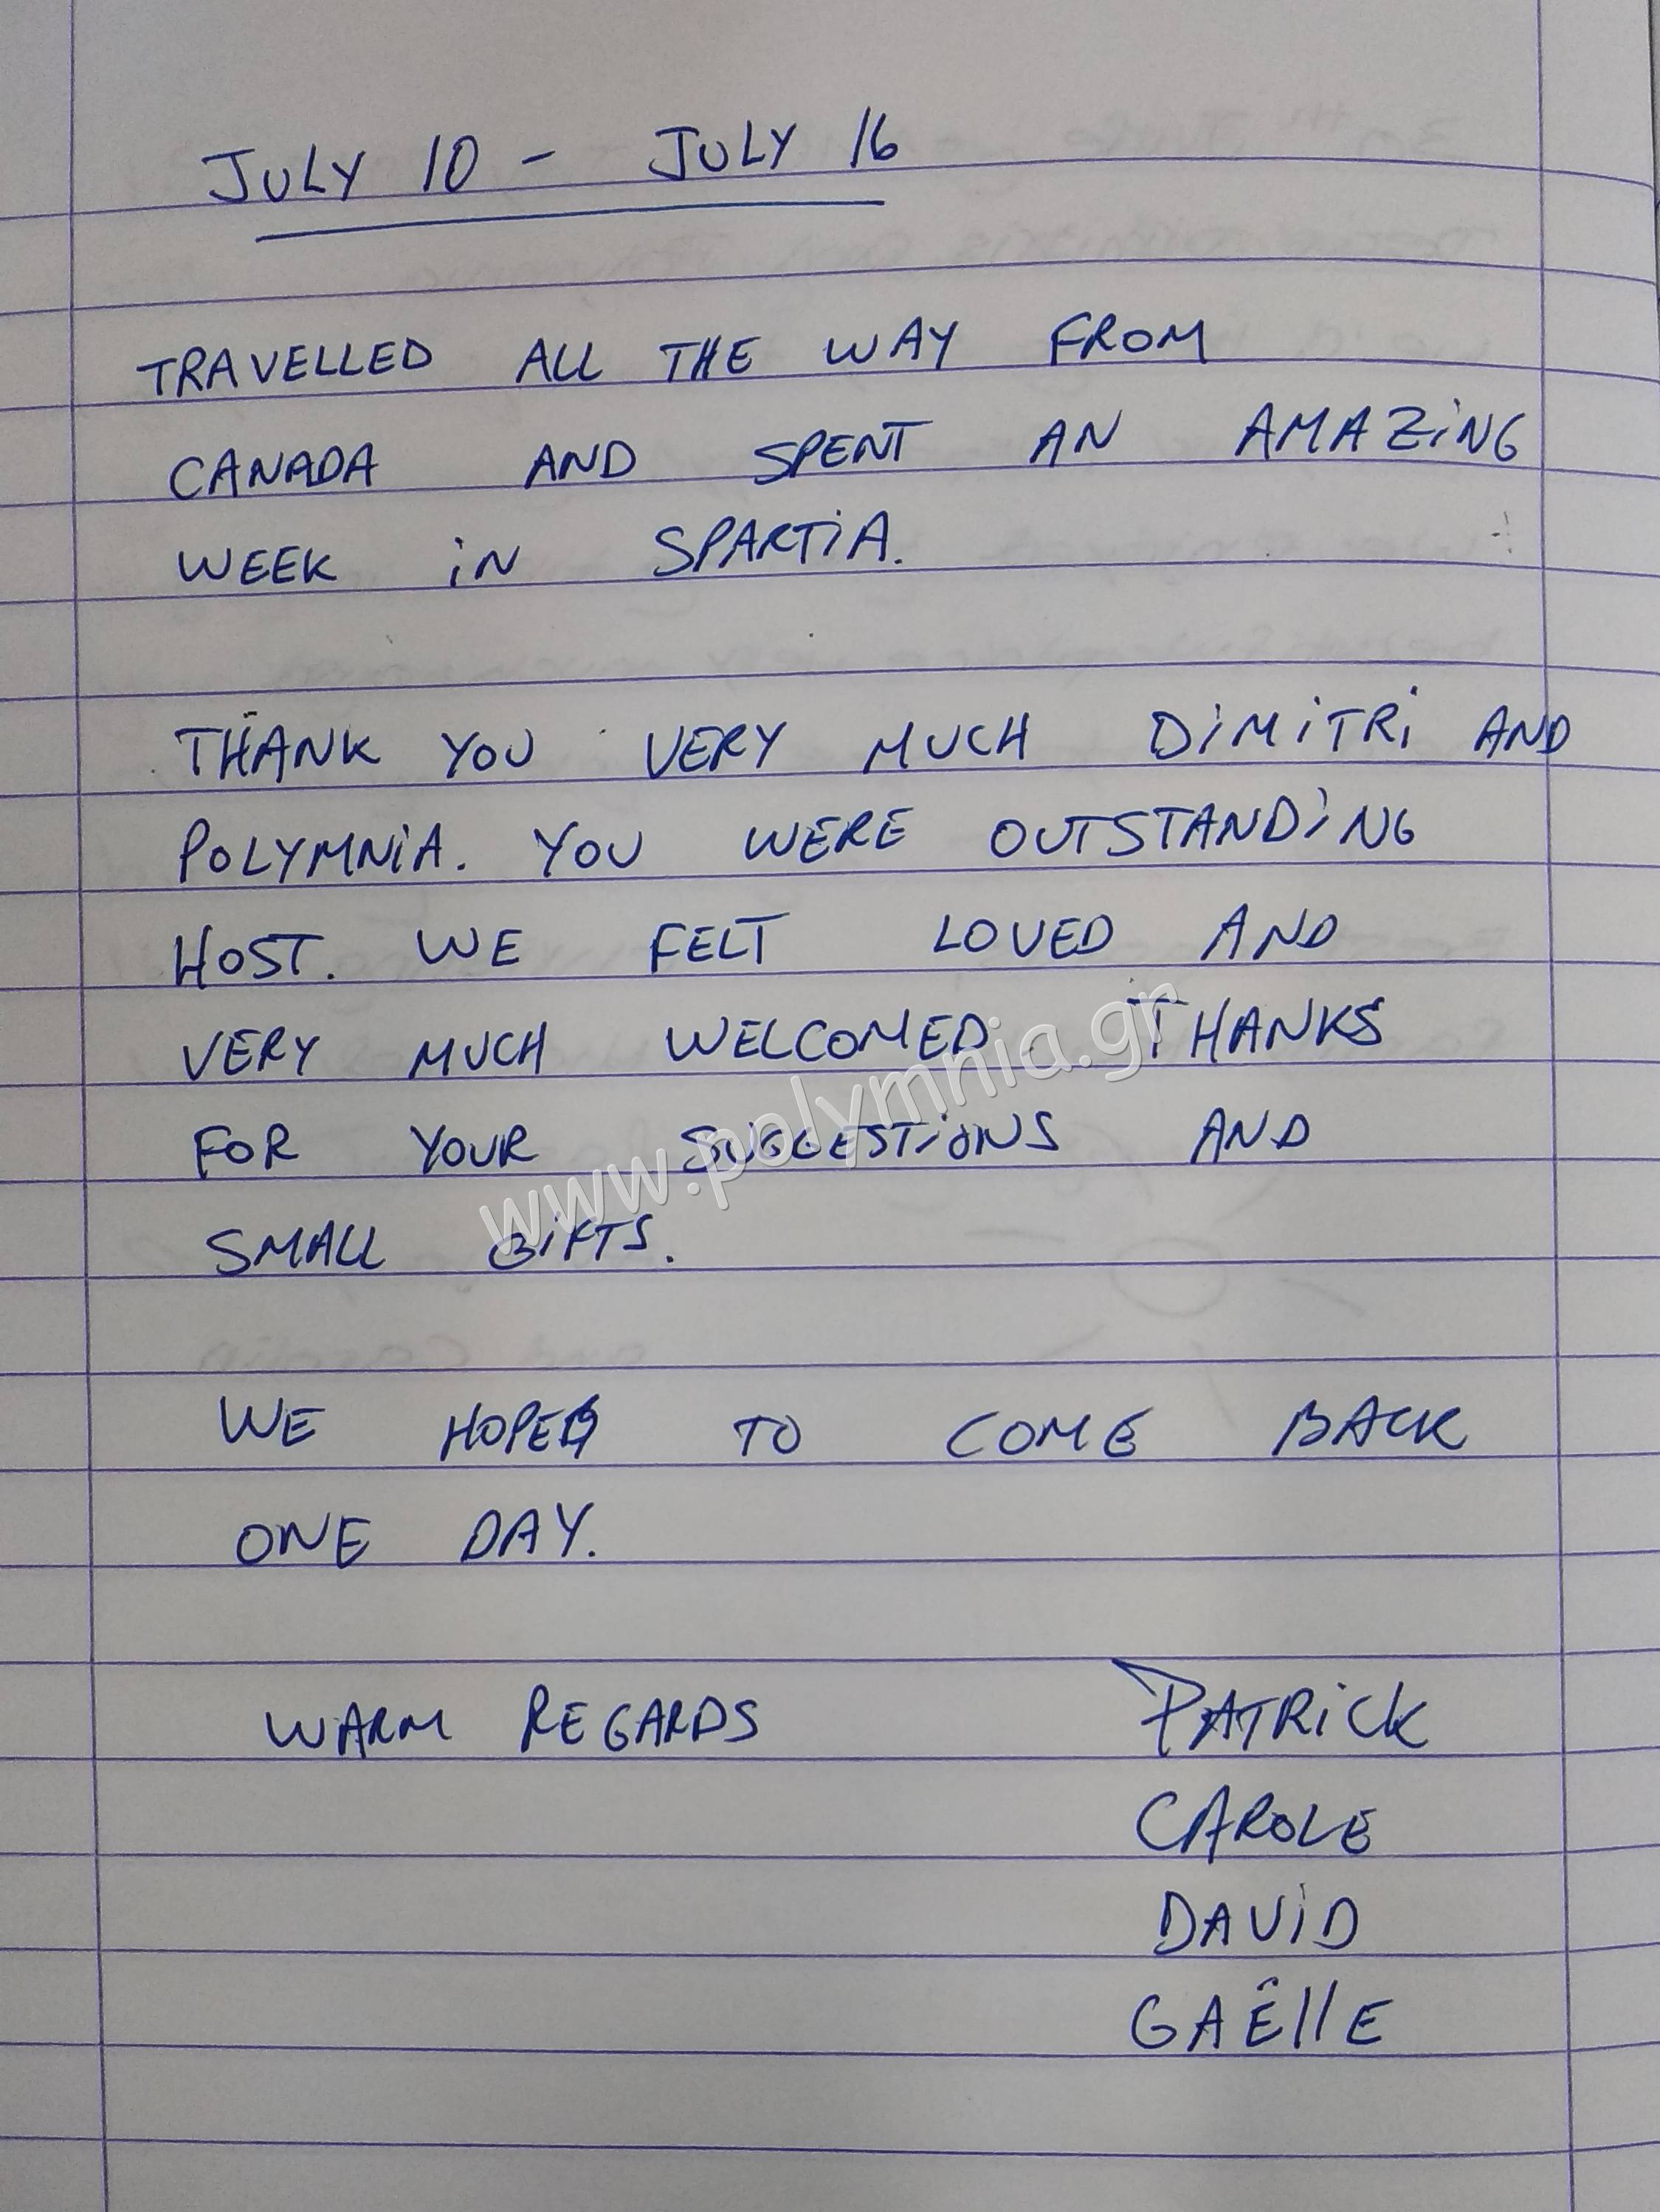 JULY 10 - JULY 16
TRAVELLED ALL THE WAY FROM
CANADA AND SPENT AN AMAZiNG
WEEK iN SPARTiA.
THANK YOU VERY MUCH DiMiTRi AND
POLYMNiA. YOU WERE OUTSTANDiNG
HOST. WE FELT LOVED AND
VERY MUCH WELCOMED. THANKS
FOR YOUR SUGGESTiONS AND
SMALL GiFTS.
www.polymnia.gr
WE HOPE TO COME BACK
ONE DAY.
WARM REGARDS PATRiCK
CAROLE
DAViD
GAÊllE